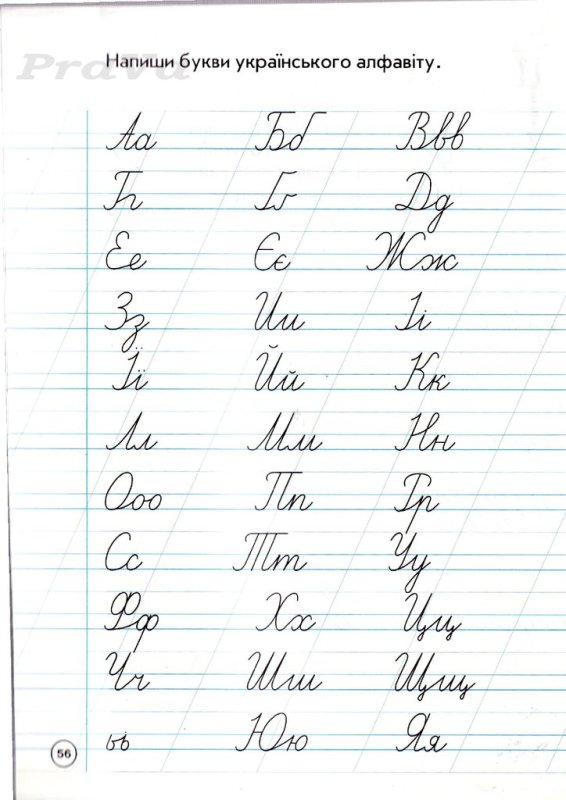 PraVa
Напиши букви українського алфавіту.
Аа Бб Ввв
Гг Ґґ Дд
Ее Єє Жж
Зз Ии Іі
Її Йй Кк
Лл Мм Нн
Ооо Пп Рр
Сс Тт Уу
Фф Хх Цц
Чч Шш Щщ
ьь Юю Яя
56